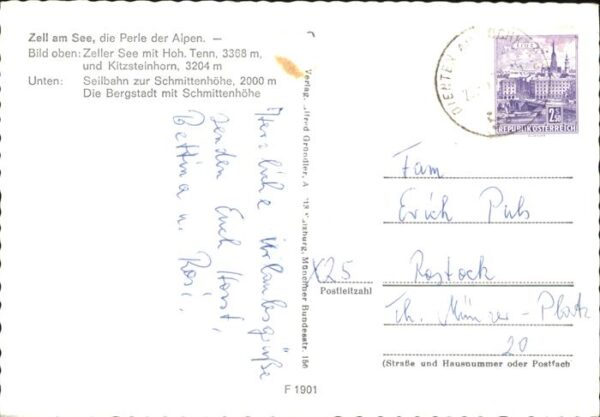 Zell am See, die Perle der Alpen. —
Bild oben: Zeller See mit Hoh. Tenn, 3368 m,
und Kitzsteinhorn, 3204 m
Unten: Seilbahn zur Schmittenhöhe, 2000 m
Die Bergstadt mit Schmittenhöhe
Herzliche Urlaubsgrüße
senden Euch Horst,
Bettina u. Rosi.
Verlag Alfred Gründler, Salzburg, Münchner Bundesstr. 156
DIENTEN AM
2.50
REPUBLIK ÖSTERREICH
Fam
Erich Puls
X25 Rostock
Postleitzahl
Th. Münzer-Platz
20
(Straße und Hausnummer oder Postfach)
F 1901